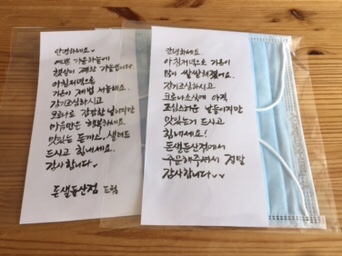 안녕하세요♡
예쁜 가을하늘에
햇살이 가득한 가을입니다.
아침저녁으로
기온이 제법 서늘해요.
감기조심하시고
코로나로 답답한 날이지만
마음만은 행복하세요.
맛있는 돈까스, 샐러드
드시고 힘내세요.
감사합니다♡
돈샐둔산점 드림
안녕하세요.
아침저녁으로 기온이
많이 쌀쌀해졌어요.
감기조심하시고
코로나소식에 아직
조심스러운 날들이지만
맛있는거 드시고
힘내세요!
돈샐둔산점에서
주문해주셔서 정말
감사합니다♡♡